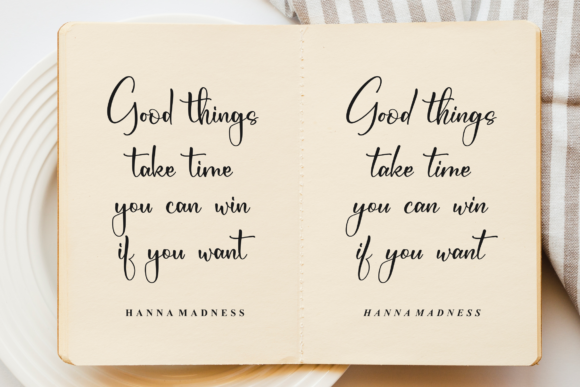 Good things
take time
you can win
if you want
HANNAMADNESS
Good things
take time
you can win
if you want
HANNAMADNESS